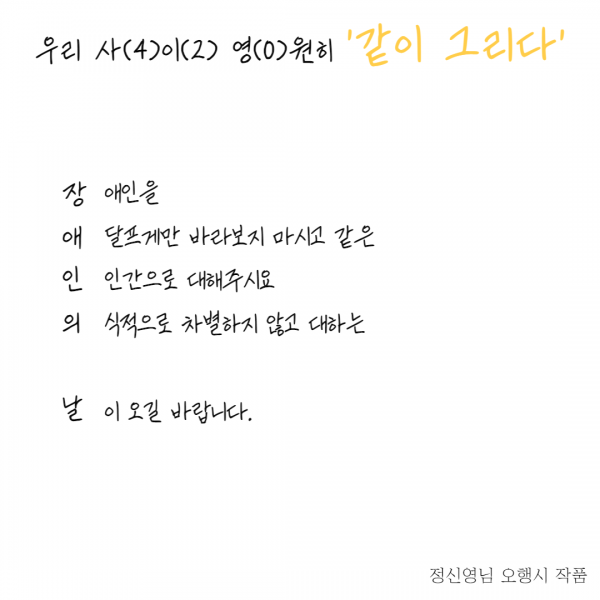 우리 사(4)이(2) 영(0)원히 '같이 그리다'
장 애인을
애 달프게만 바라보지 마시고 같은
인 인간으로 대해주시요
의 식적으로 차별하지 않고 대하는
날 이 오길 바랍니다.
정신영님 오행시 작품